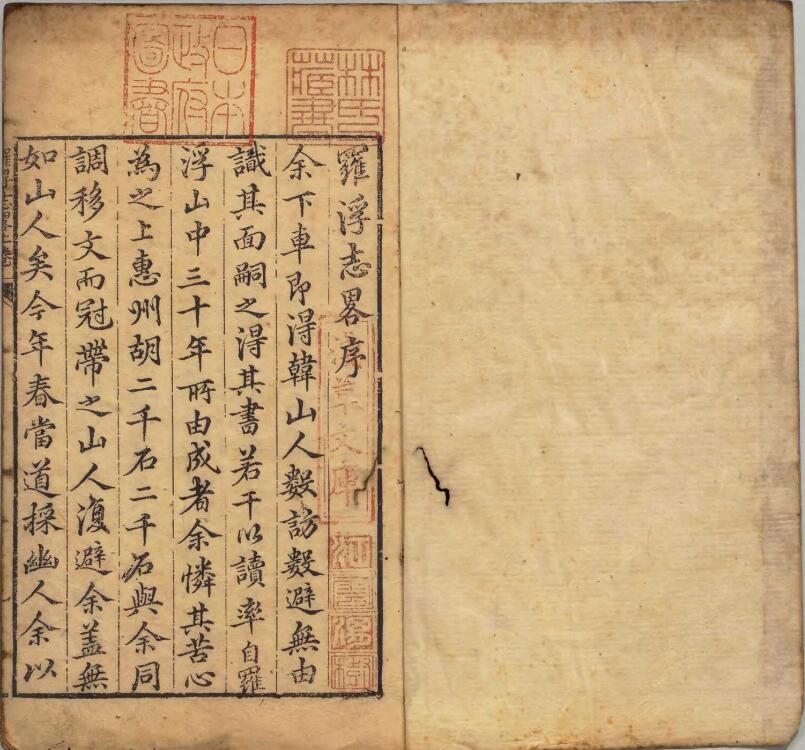 林氏藏書
日本政府圖書
羅浮志畧序
淺草文庫
江雲渭樹
余下車即得韓山人數訪數避無由
識其面嗣之得其書若干以讀率自羅
浮山中三十年所由成者余憐其苦心
為之上惠州胡二千石二千石與余同
調移文而冠帶之山人復避余盖無
如山人矣今年春當道採幽人余以